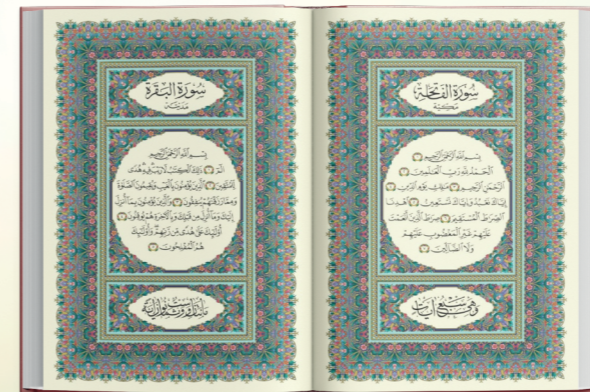 سورة الفاتحة
مكية
بسم الله الرحمن الرحيم
الحمد لله رب العلمين
الرحمن الرحيم ملك يوم الدين
إياك نعبد وإياك نستعين اهدنا
الصرط المستقيم صرط الذين أنعمت
عليهم غير المغضوب عليهم
ولا الضالين
وهي سبع آيات
سورة البقرة
مدنية
بسم الله الرحمن الرحيم
الم ذلك الكتب لا ريب فيه هدى
للمتقين الذين يؤمنون بالغيب ويقيمون الصلوة
ومما رزقنهم ينفقون والذين يؤمنون بما أنزل
إليك وما أنزل من قبلك وبالأخرة هم يوقنون
أولئك على هدى من ربهم وأولئك
هم المفلحون